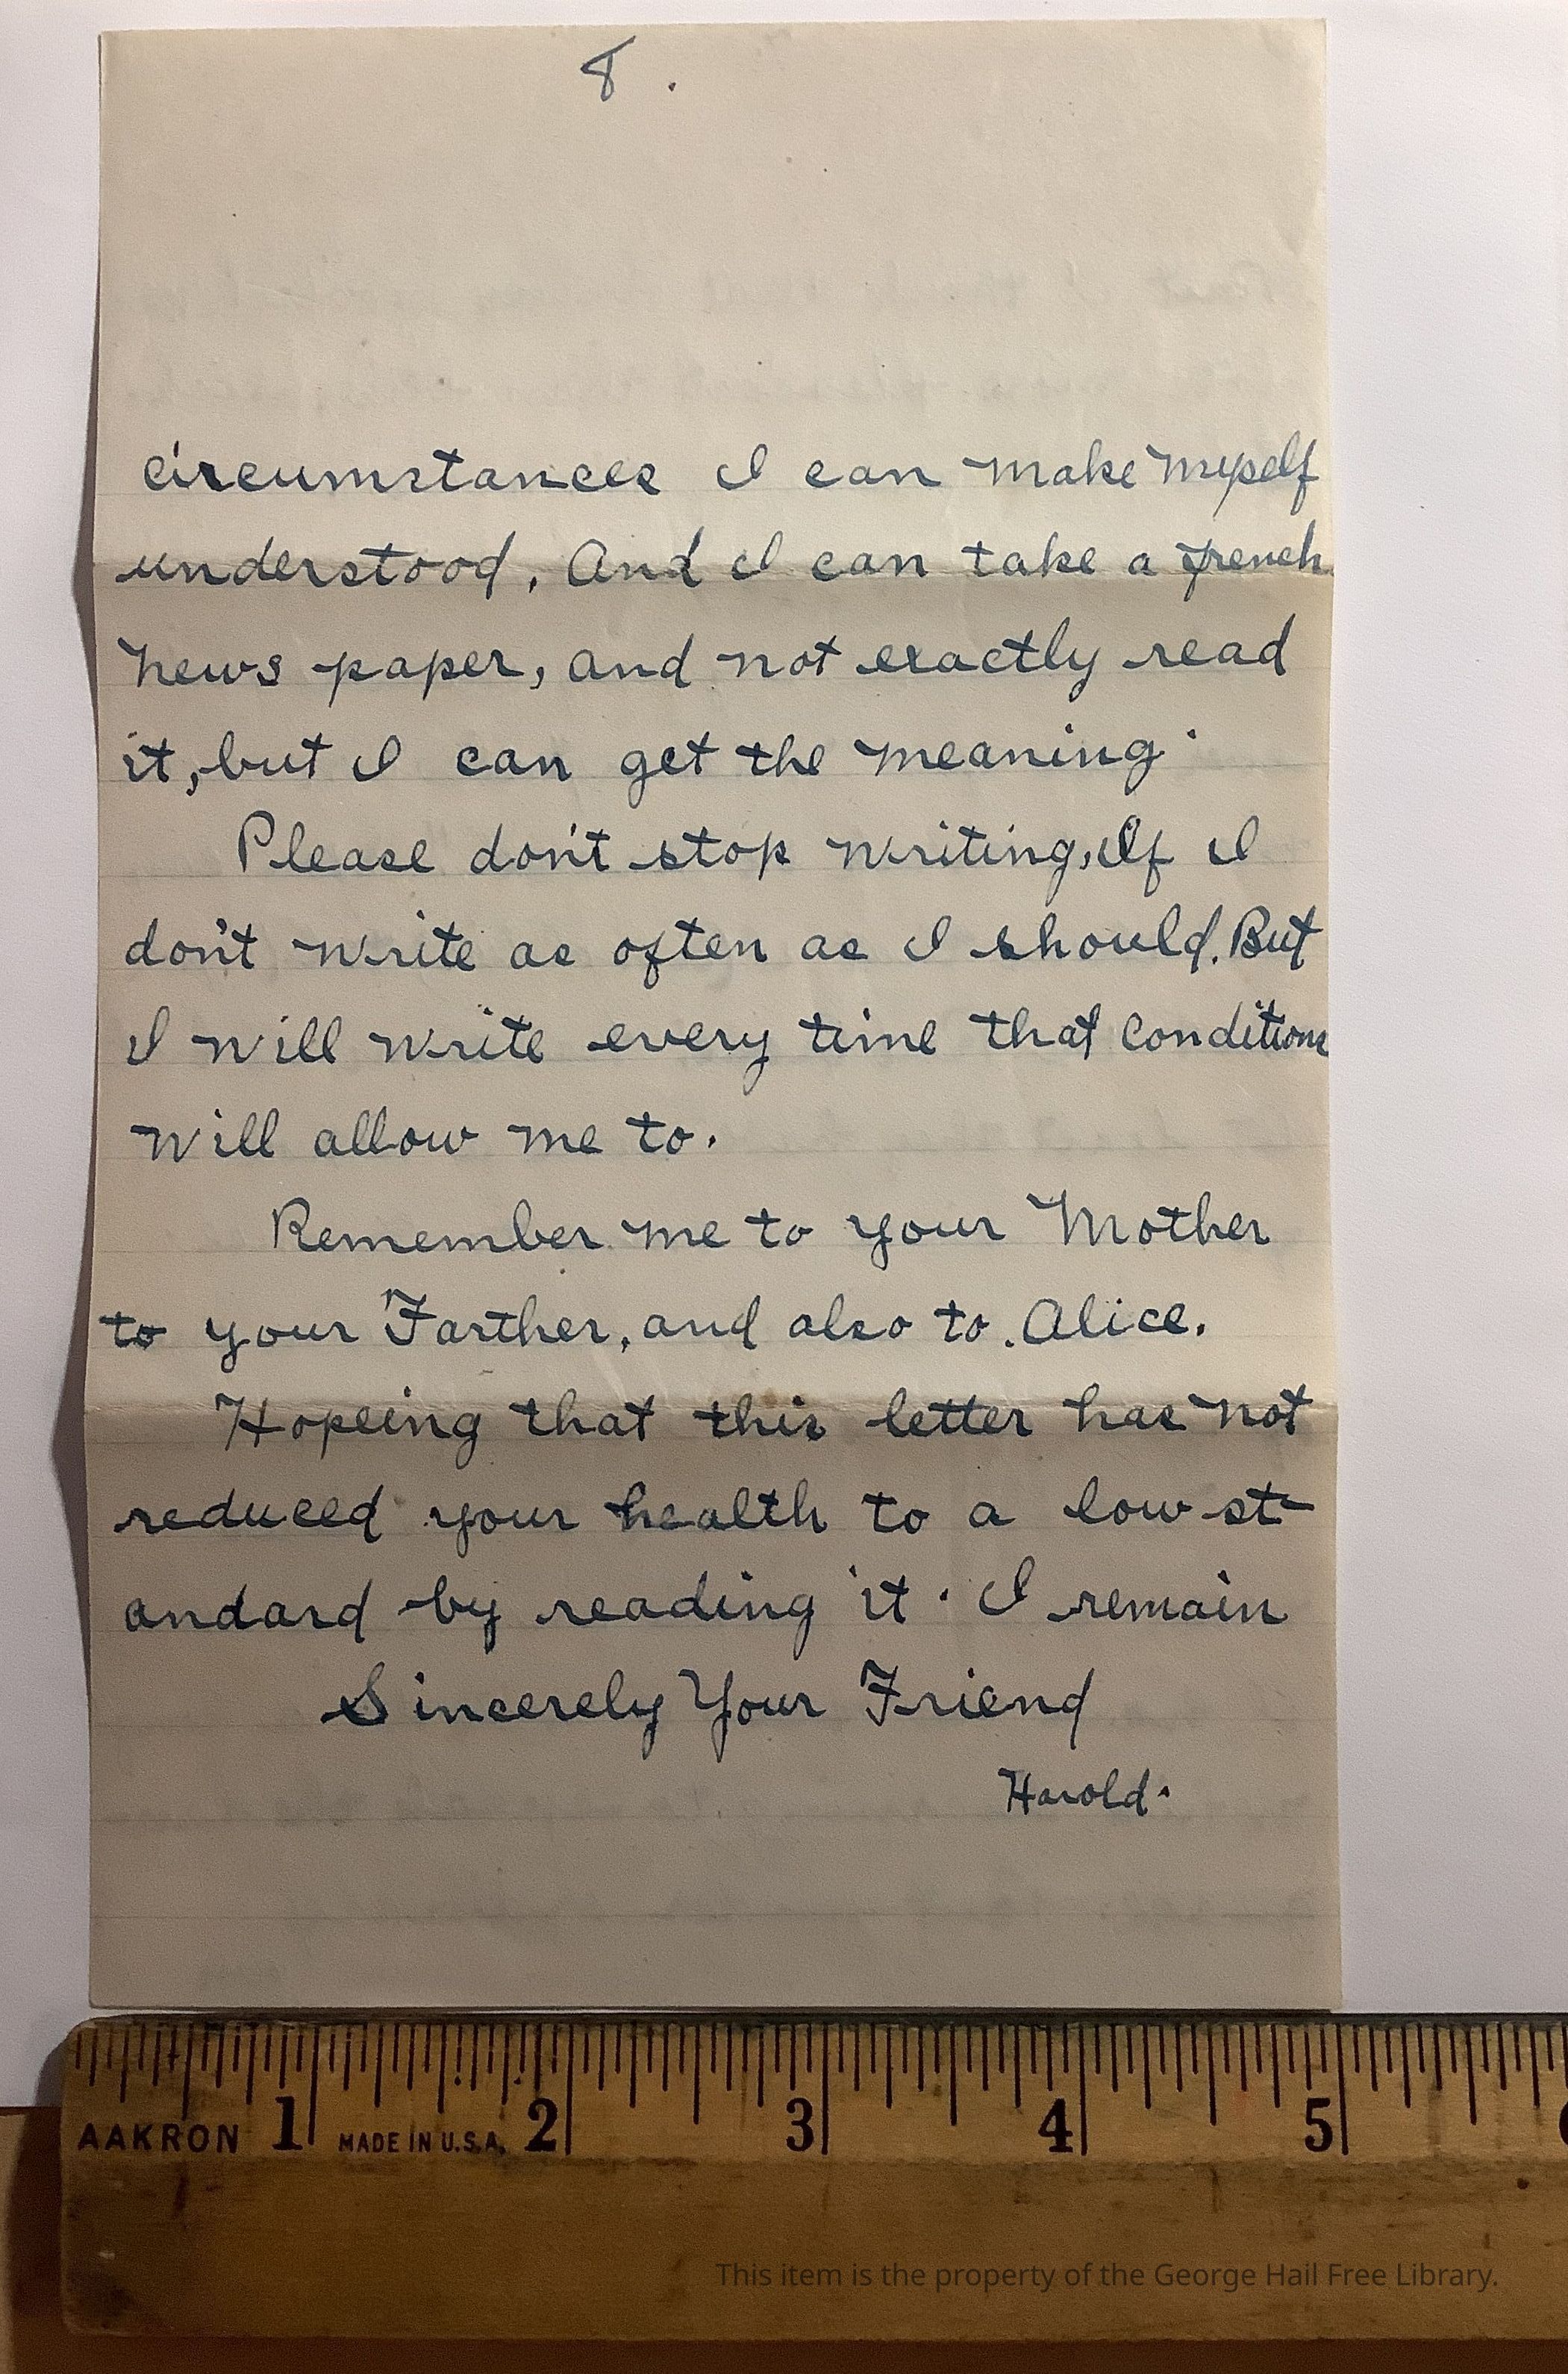 8.
circumstances I can make myself
understood. And I can take a french
news paper, and not exactly read
it, but I can get the meaning.
Please don't stop writing, If I
don't write as often as I should. But
I will write every time that conditions
will allow me to.
Remember me to your Mother
to your Farther, and also to. Alice.
Hopeing that this letter has not
reduced your health to a low st-
andard by reading it. I remain
Sincerely Your Friend
Harold.
1 2 3 4 5
AAKRON MADE IN U.S.A.
This item is the property of the George Hail Free Library.